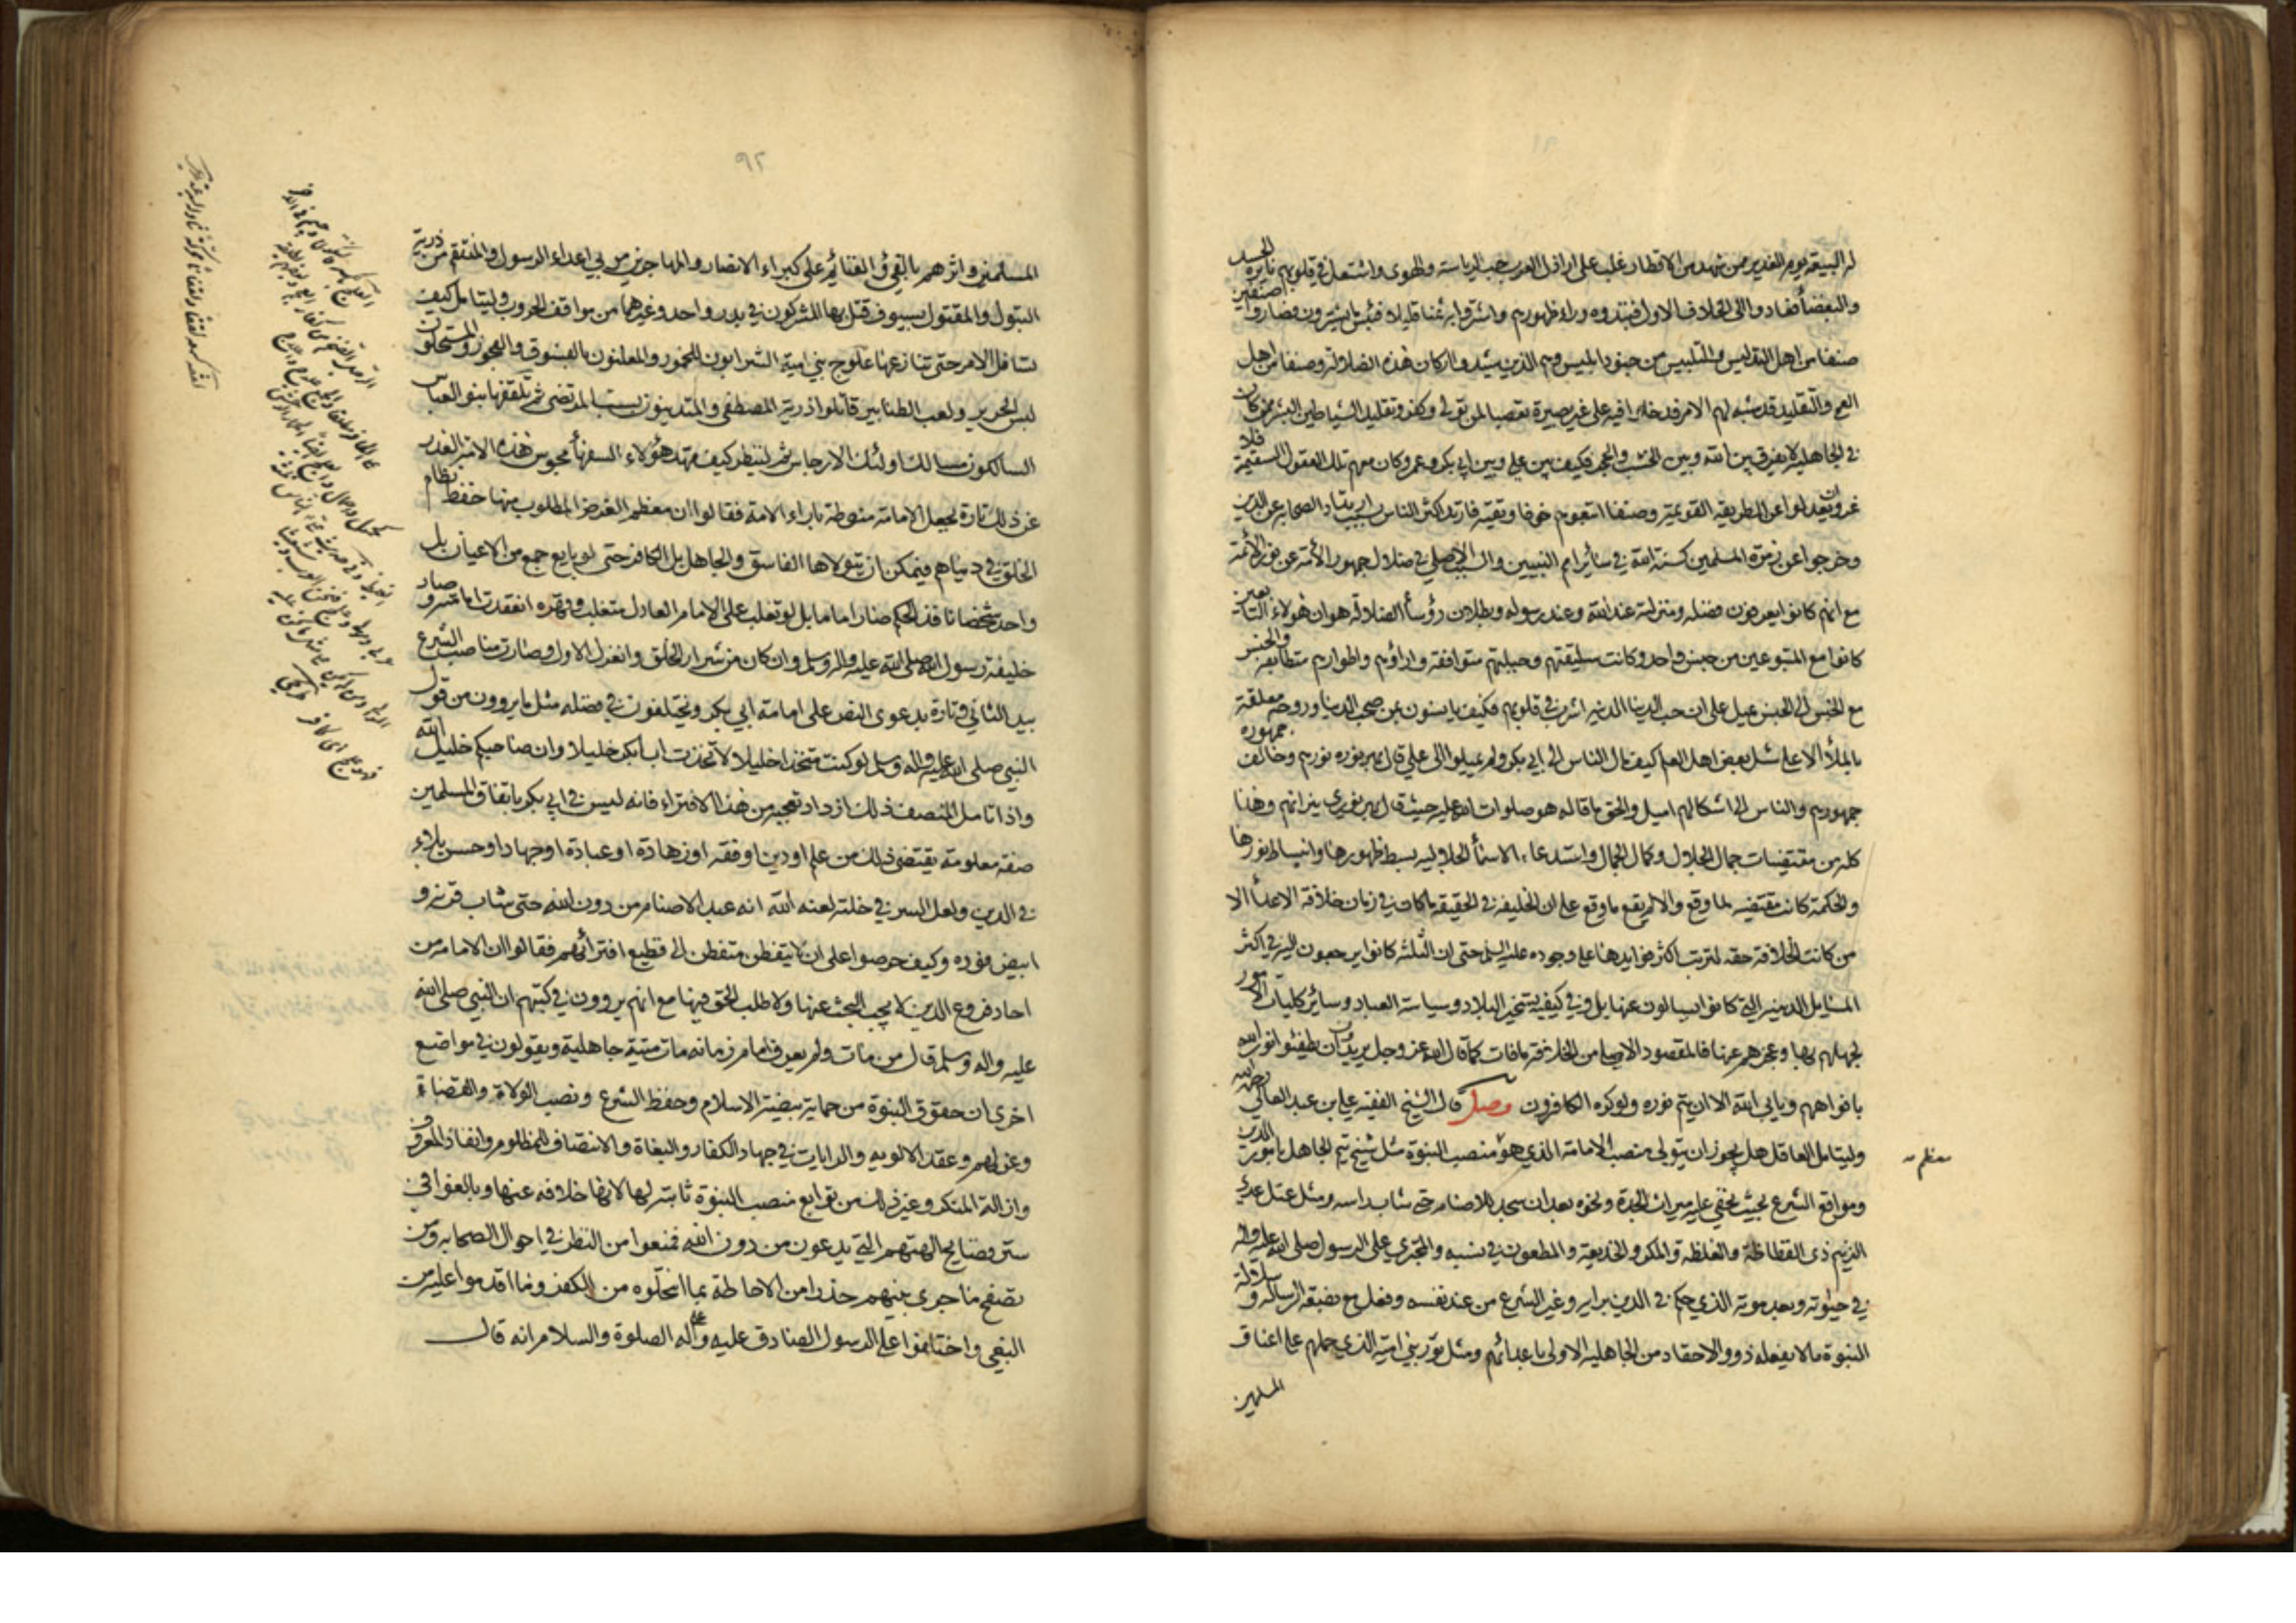 له البيعة يوم الغدير ممن شهد من الاقطار غلب على اراذل العرب حب الرياسة والهوى واشتعل في قلوبهم نايرة الحسد
والبغضاء فعادوا الى الخلاف الاول فنبذوه وراء ظهورهم واشتروا به ثمنا قليلا فبئس ما يشترون فصاروا صنفين
صنفا من اهل التدليس والتلبيس من جنود ابليس وهم الذين شيدوا اركان هذه الضلالة وصنفا من اهل
العمى والتقليد قد شبه لهم الامر فدخلوا فيه على غير بصيرة تعصبا لمن تولى وكفر وتقليد الشياطين البشر ممن كان
في الجاهلية لا يفرق بين الله وبين الخشب والحجر فكيف بين علي وبين ابي بكر وعمر وكان معهم تلك العقول السقيمة فلا
غرو ان يعدلوا عن الطريقة القويمة وصنفا اتبعوهم خوفا وتقية فارتد اكثر الناس بسبب ارتداد الصحابة عن الدين
وخرجوا عن زمرة المسلمين كسنة الله في سائر امم النبيين والسبب الاصلي في ضلال جمهور الامة عن نور الائمة
مع انهم كانوا يعرفون فضله ومنزلته عند الله وعند رسوله وبطلان رؤساء الضلالة هو ان هؤلاء التابعين
كانوا مع المتبوعين من جنس واحد وكانت سليقتهم وجبلتهم متوافقة واراؤهم واطوارهم متطابقة والجنس
مع الجنس الى الجنس يميل على ان حب الدنيا الدنية اشرب في قلوبهم فكيف يانسون بمن صحب الدنيا وروحه معلقة
بالملأ الاعلى سئل بعض اهل العلم كيف مال الناس الى ابي بكر ولم يميلوا الى علي قال بهر نوره نورهم وخالف جمهوره
جمهورهم والناس الى اشكالهم اميل والحق ما قاله هو صلوات الله عليه حيث قال بهر نوري نيرانهم وهذا
كله من مقتضيات جمال الجلال وكمال الجمال واستدعاء الاسماء الجلالية بسط ظهورها وانبساط نورها
والحكمة كانت مقتضية لما وقع والا لم يقع ما وقع على ان الخليفة في الحقيقة ما كان في زمان خلافة الاعداء الا
من كانت الخلافة حقه لترتب اكثر فوايدها على وجوده عليه السلم حتى ان الثلثة كانوا يرجعون اليه في اكثر
المسايل الدينية التي كانوا يسالون عنها بل وفي كيفية تسخير البلاد وسياسة العباد وسائر كليات الامور
لجهلهم بها وعجزهم عنها فالمقصود الاصلي من الخلافة ما فات كما قال الله عز وجل يريدون ان يطفئوا نور الله
بافواههم ويابى الله الا ان يتم نوره ولو كره الكافرون وصل قال الشيخ الفقيه علي بن عبد العالي رحمه الله
وليتامل العاقل هل يجوز ان يتولى منصب الامامة الذي هو منصب النبوة مثل شيخ تيم الجاهل بامور الدين
ومواقع الشرع بحيث يخفى عليه ميراث الجدة ونحوه بعد ان سجد للاصنام حتى شاب راسه ومثل عتل عدي
الزنيم ذي الفظاظة والغلظة والمكر والخديعة والمطعون في نسبه والمتجري على الرسول صلى الله عليه واله
في حيوته وبعد موته الذي حكم في الدين برايه وغير الشرع من عند نفسه وفعل مع بضعة الرسالة وسلالة
النبوة ما لا يفعله ذوو الاحقاد من الجاهلية الاولى باعدائهم ومثل ثور بني امية الذي حملهم على اعناق
المسلمين
معظم
٩٢
المسلمين واثرهم بالفيء والغنائم على كبراء الانصار والمهاجرين من بني اعداء الرسول والمنتقم من ذرية
البتول والمقتول بسيوف قتل بها المشركون في بدر واحد وغيرهما من مواقف الحروب وليتامل كيف
تسافل الامر حتى تنازعها علوج بني امية الشرابون للخمور والمعلنون بالفسوق والفجور والمستحلون
لبس الحرير ولعب الطنابير قاتلوا ذرية المصطفى والمتدينون بسب المرتضى ثم تلقفها بنو العباس
السالكون مسالك اولئك الارجاس ثم لينظر كيف مهد هؤلاء السفهاء مجوس هذه الامة العذر
عن ذلك تارة بجعل الامامة منوطة باراء الامة فقالوا ان معظم الغرض المطلوب منها حفظ نظام
الخلق في دنياهم فيمكن ان يتولاها الفاسق والجاهل بل الكافر حتى لو بايع جمع من الاعيان بل
واحد شخصا نافذ الحكم صار اماما بل لو تغلب على الامام العادل متغلب وقهره انعقدت امامته وصار
خليفة رسول الله صلى الله عليه واله وسلم وان كان من شرار الخلق وانعزل الاول وصارت مناصب الشرع
بيد الثاني وتارة بدعوى النص على امامة ابي بكر ويختلفون في فضله مثل ما يروون من قول
النبي صلى الله عليه واله وسلم لو كنت متخذا خليلا لاتخذت ابا بكر خليلا وان صاحبكم خليل الله
واذا تامل المنصف ذلك ازداد تعجبه من هذا الافتراء فانه ليس في ابي بكر باتفاق المسلمين
صفة معلومة يقتضي ذلك من علم او دين او فقه او زهادة او عبادة او جهاد او حسن بلاء
في الدين ولعل السر في خلته لعنه الله انه عبد الاصنام من دون الله حتى شاب قرنه و
ابيض فوده وكيف حرصوا على ان لا يتفطن متفطن الى فظيع افترائهم فقالوا ان الامامة من
احاد فروع الدين لا يجب البحث عنها ولا طلب الحق فيها مع انهم يروون في كتبهم ان النبي صلى الله
عليه واله وسلم قال من مات ولم يعرف امام زمانه مات ميتة جاهلية ويقولون في مواضع
اخرى ان حقوق النبوة من حماية بيضة الاسلام وحفظ الشرع ونصب الولاة والقضاة
وعزلهم وعقد الالوية والرايات في جهاد الكفار والبغاة والانتصاف للمظلوم وانفاذ المعروف
وازالة المنكر وغير ذلك من توابع منصب النبوة ثابتة لها لانها خلافة عنها وبالغوا في
ستر فضايح الهتهم التي يدعون من دون الله فمنعوا من النظر في احوال الصحابة ومن
تصفح ما جرى بينهم حذرا من الاحاطة بما انتحلوه من الكفر وما اقدموا عليه من
البغي واختلقوا على الرسول الصادق عليه وعلى اله الصلوة والسلام انه قال